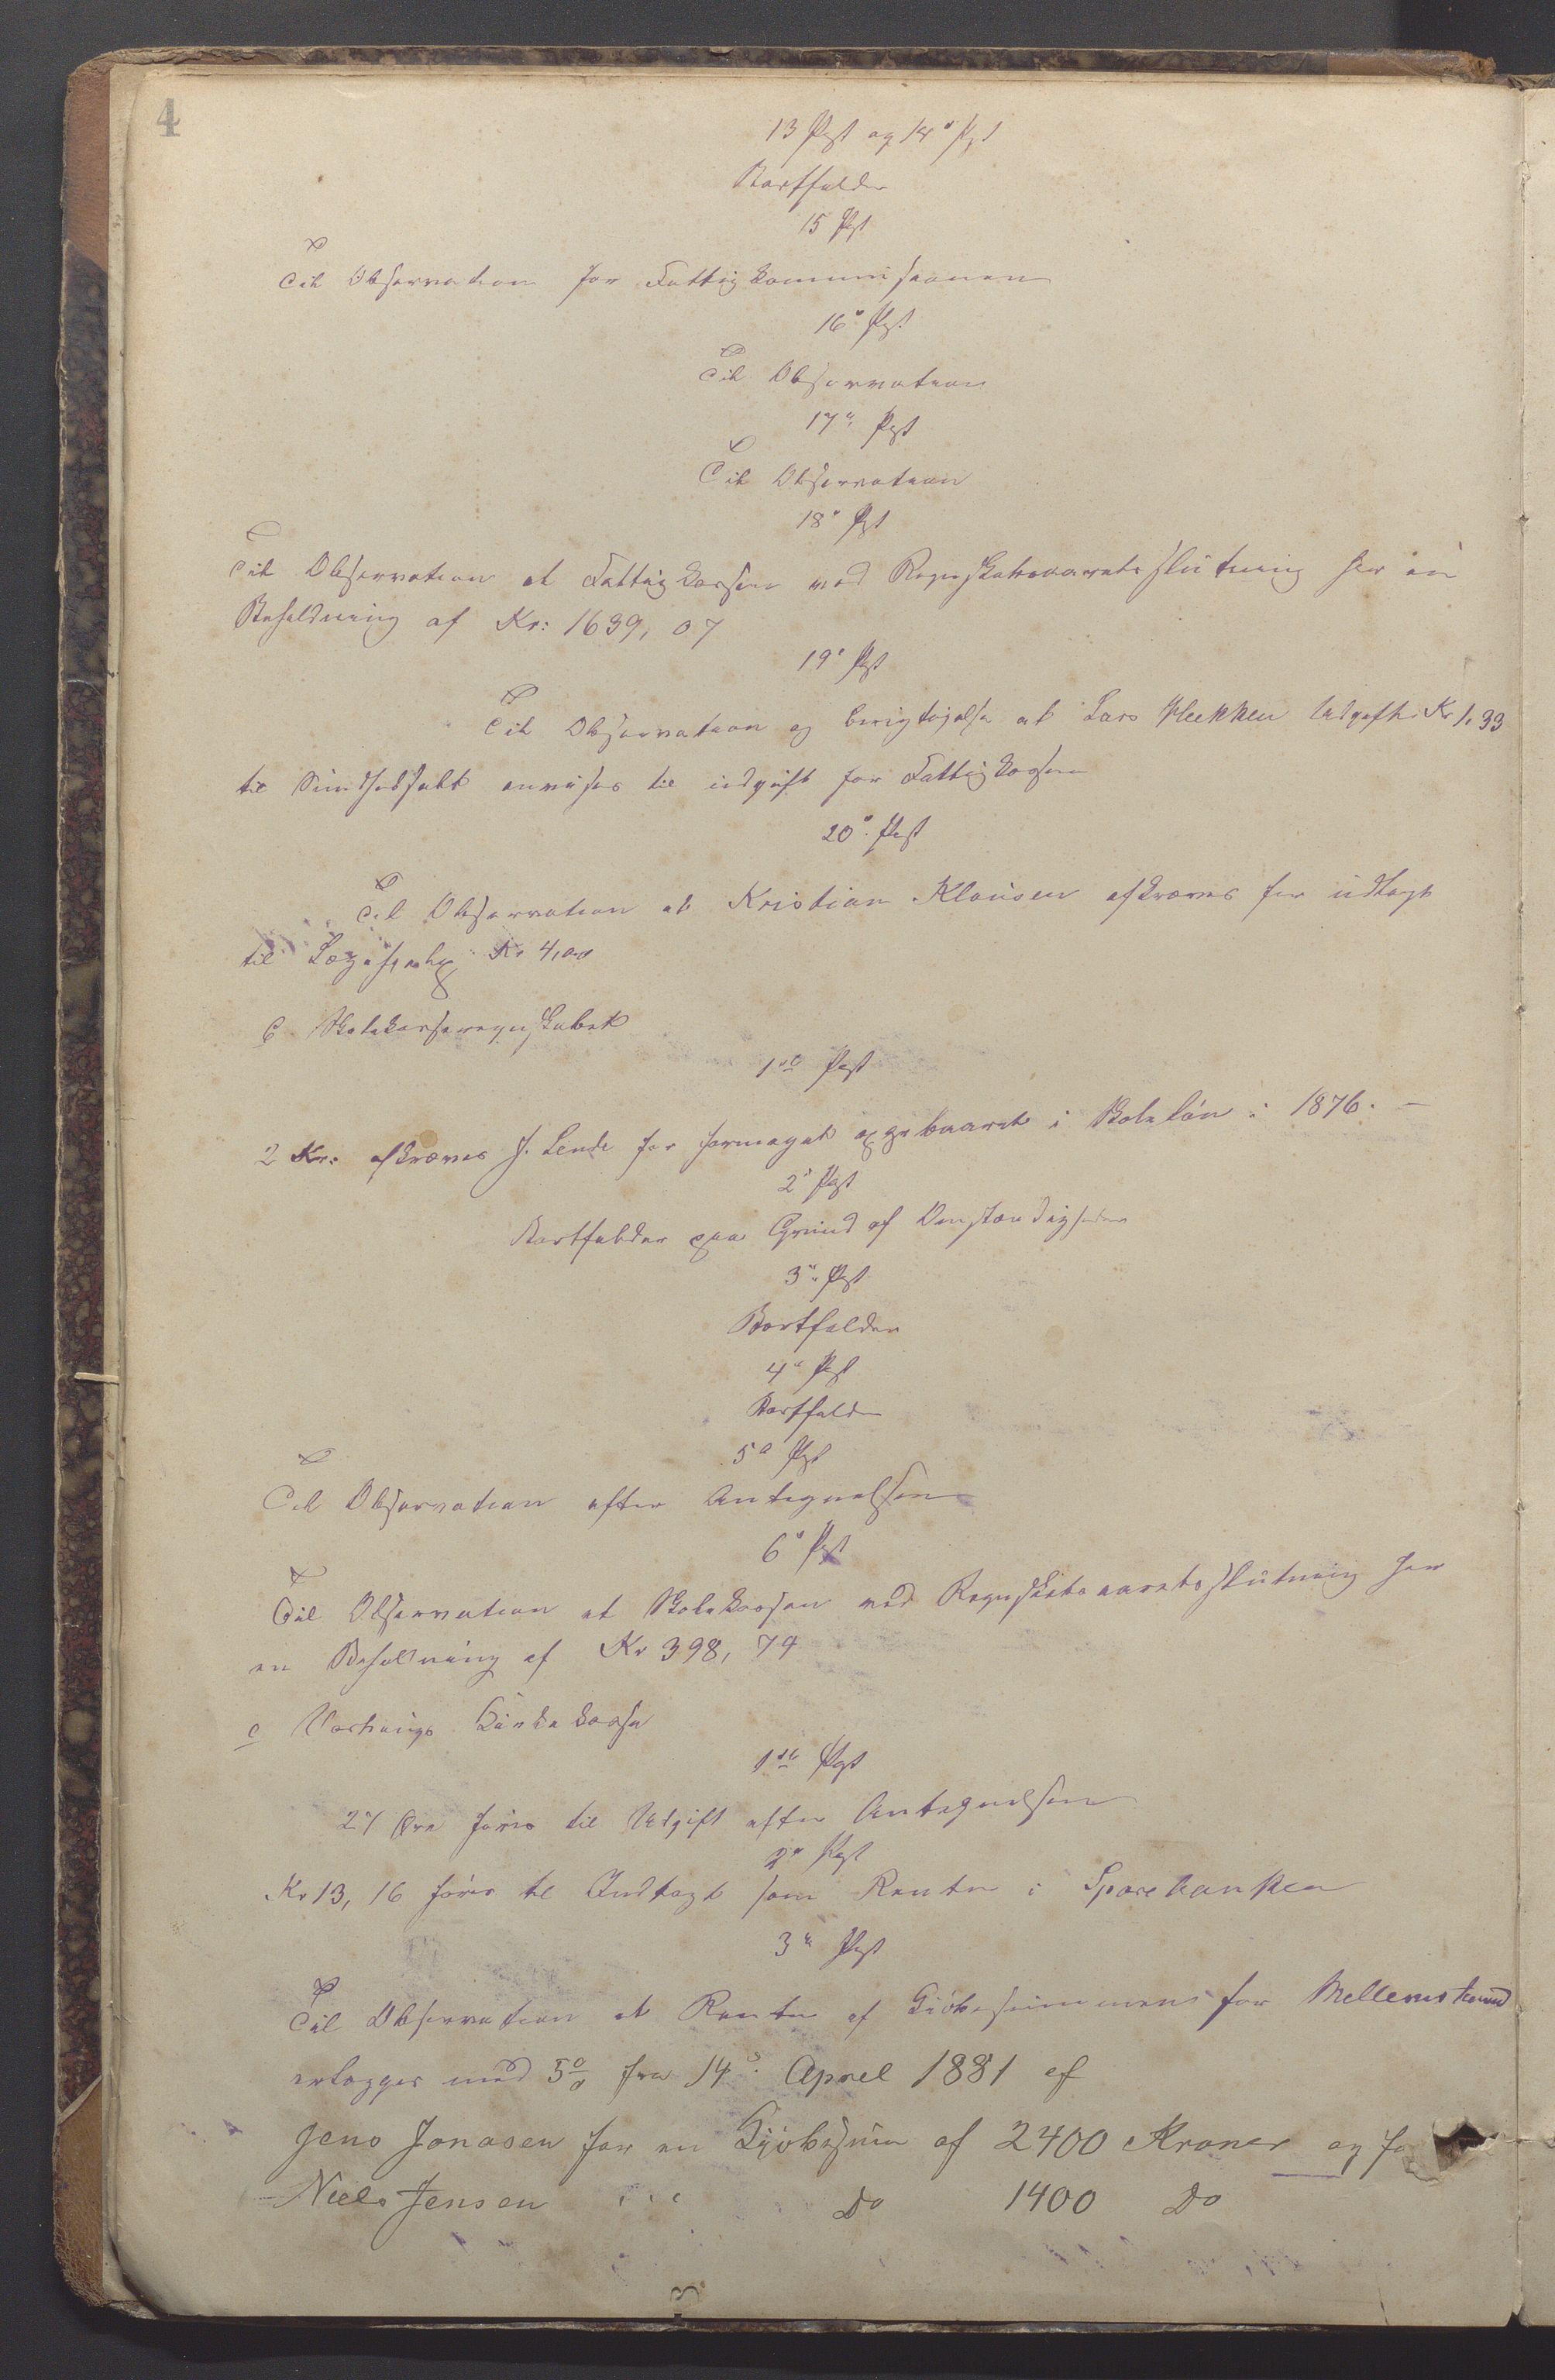 4
13 Post og 14de Post
Bortfalder
15 Post
Til Observation for Fattigkommissionen
16de Post
Til Observation
17de Post
Til Observation
18de Post
Til Observation at Fattigkassen ved Regnskabsaarets slutning har en
Beholdning af Kr: 1639,07
19de Post
Til Observation og berigtigelse at Lars udgift Kr 1,33
til Sindssvagt anvises til udgift for Fattigkassen
20de Post
Til Observation at Kristian Klausen afkræves for udlagt
til Lægehjælp Kr 4,00
C Skolekasseregnskabet
1ste Post
2 Kr: afkræves J. Lende for formeget oppebaaret i Skoleløn i 1876. —
2den Post
Bortfalder paa Grund af Omstændigheder
3die Post
Bortfalder
4de Post
Bortfalder
5te Post
Til Observation efter Antegnelsen
6te Post
Til Observation at Skolekassen ved Regnskabsaarets slutning har
en Beholdning af Kr 398,74
c Varhaugs Kirkekasse
1ste Post
27 Øre føres til Udgift efter Antegnelsen
2den Post
Kr 13,16 føres til Indtægt som Renter i Sparebanken
3die Post
Til Observation at Renter af Kjøbesummens for Mellemstrand
erlægges med 5% fra 14de April 1881 af
Jens Jonasen for en Kjøbesum af 2400 Kroner og fo
Niels Jensen " " " Do 1400 Do